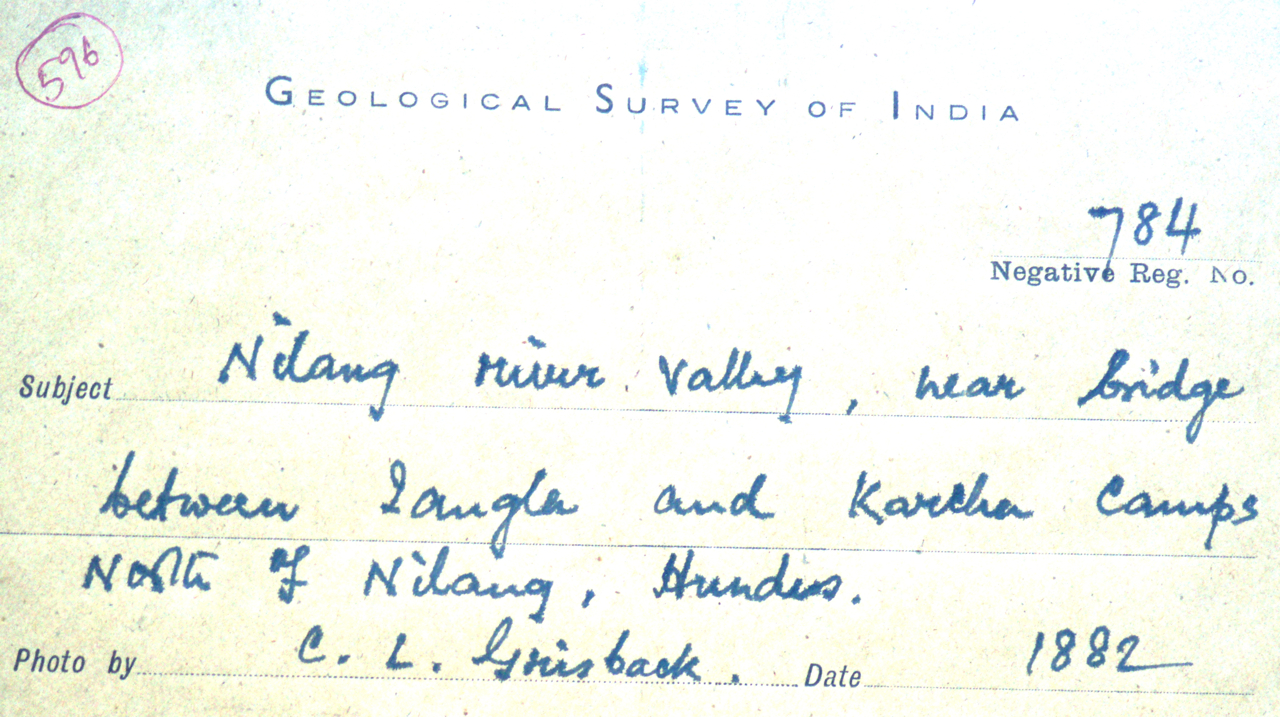 596
GEOLOGICAL SURVEY OF INDIA
784
Negative Reg. No.
Subject Nilang river valley, near bridge
between and Karcha Camps
North of Nilang, Hundes.
Photo by C. L. Griesback. Date 1882